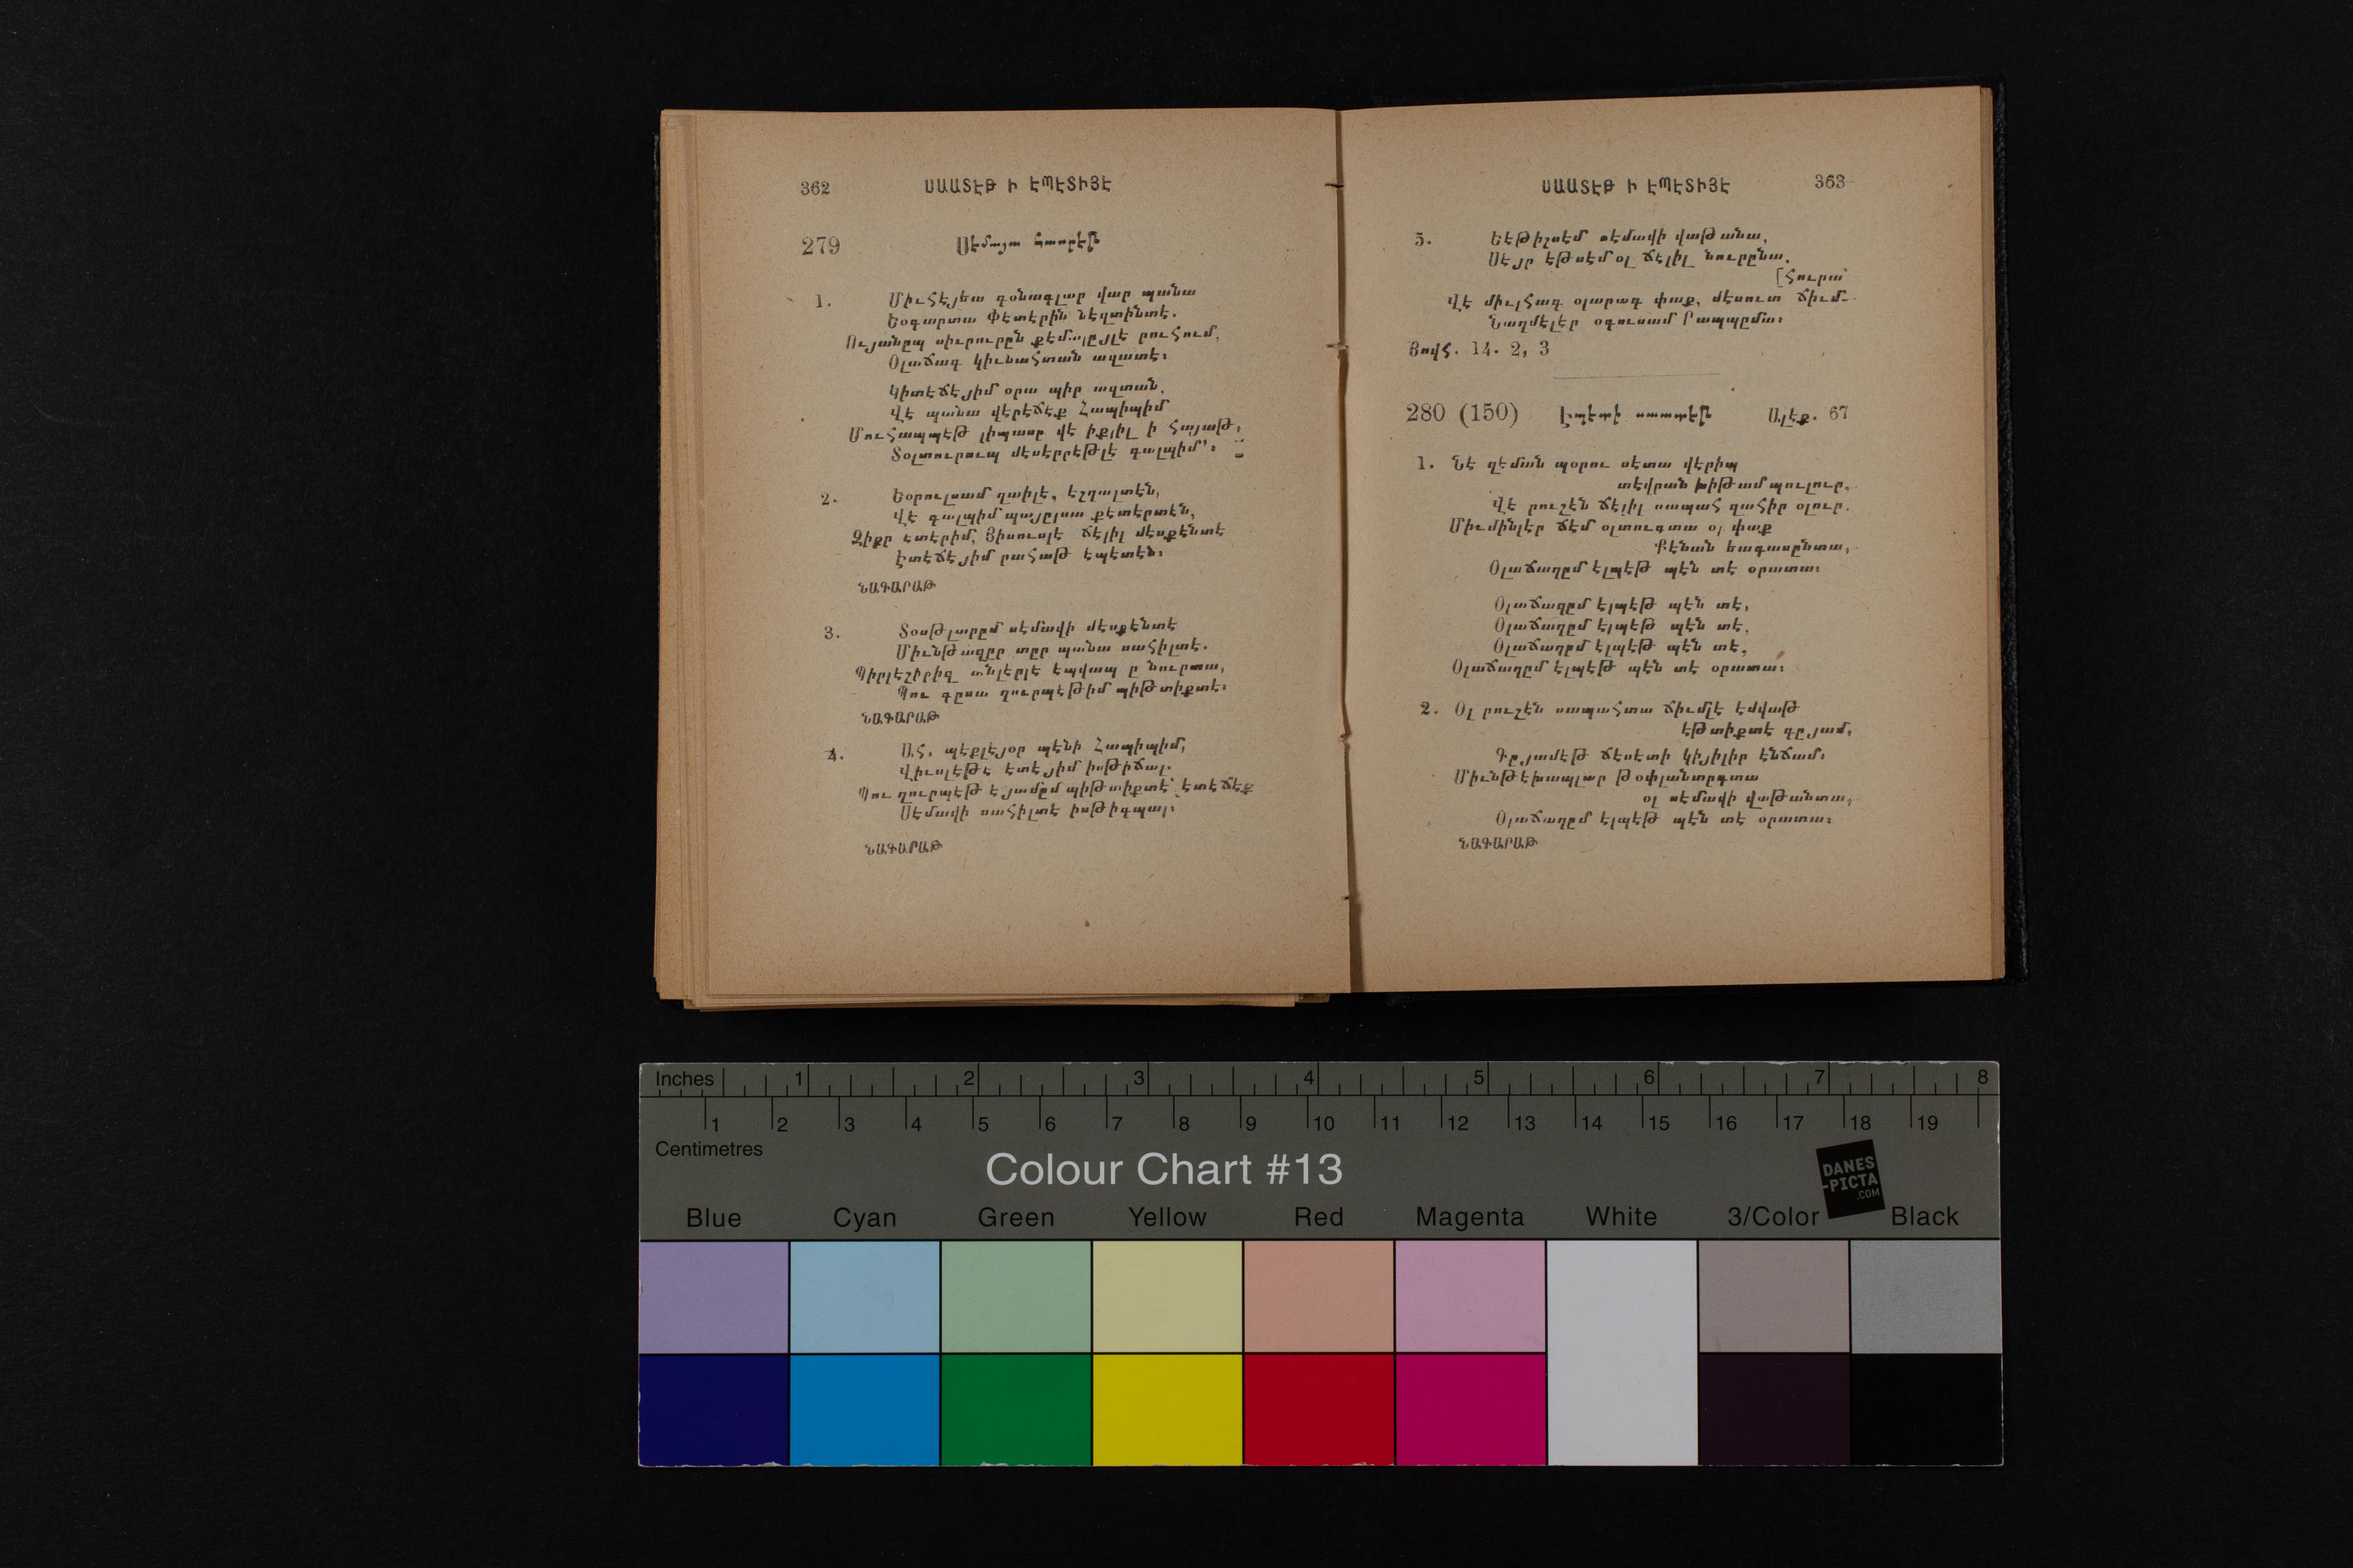 362 ՍԱԱՏԷԹ Ի ԷՊԷՏԻՅԷ
279 Սէմայա հասրէթ
1. Միւհէյեա գօնագլար վար պանա
Եօգարտա Փէտէրին նէզտինտէ.
Ույանըպ սիւրուրըն քէմալըյլէ րուհում,
Օլաճագ կիւնահտան ազատէ։
Կիտէճէյիմ օրա պիր ազտան,
Վէ պանա վէրէճէք Հապիպիմ
Մուհապպէթ լիպասը վէ իքլիլ ի հայաթ,
Տօլտուրուպ մէսէրրէթլէ գալպիմ՚ ։
2. Եօրուլսամ ղաիլէ, էշղալտէն,
Վէ գալպիմ պայըլսա քէտէրտէն,
Զիքր էտէրիմ, Յիսուսլէ ճէլիլ մէսքէնտէ
Էտէճէյիմ րահաթ էպէտէն։
ՆԱԳԱՐԱԹ
3. Տօսթլարըմ սէմավի մէսքէնտէ
Միւնթազըր տըր պանա սահիլտէ.
Պիրլէշիրիզ անլէրլէ էպվապ ը նուրտա,
Պու գըսա ղուրպէթիմ պիթտիքտէ։
ՆԱԳԱՐԱԹ
4. ԱՀ, պէքլէյօր պէնի Հապիպիմ,
Վիւսլէթէ էտէյիմ իսթիճալ.
Պու ղուրպէթ էյամըմ պիթտիքտէ՝ էտէճէք
Սէմավի սահիլտէ իսթիգպալ։
ՆԱԳԱՐԱԹ
ՍԱԱՏԷԹ Ի ԷՊԷՏԻՅԷ 363
5. Եէթիշսէմ սէմավի վաթանա,
Սէյր էթսէմ օլ ճէլիլ նուրընա.
[հուրա
Վէ միւլհագ օլարագ փաք, մէսուտ ճիւմ-
Նաղմէլէր օգուսամ Րապպըմա։
Յովհ. 14. 2, 3
280 (150) Էպէտի սաատէթ Ալէք. 67
1. Նէ զէման պօրու սէտա վէրիպ
տէվրան խիթամ պուլուր,
Վէ րուշէն ճէլիլ սապահ զահիր օլուր.
Միւմինլէր ճէմ օլտուգտա օլ փաք
Քէնան եագասընտա,
Օլաճաղըմ էլպէթ պէն տէ օրատա։
Օլաճաղըմ էլպէթ պէն տէ,
Օլաճաղըմ էլպէթ պէն տէ,
Օլաճաղըմ էլպէթ պէն տէ,
Օլաճաղըմ էլպէթ պէն տէ օրատա։
2. Օլ րուշէն սապահտա ճիւմլէ էմվաթ
էթտիքտէ գըյամ,
Գըյամէթ ճէսէտի կիյիլիր էնճամ։
Միւնթէխապլար թօփլանտըգտա
օլ սէմավի վաթանտա,
Օլաճաղըմ էլպէթ պէն տէ օրատա։
ՆԱԳԱՐԱԹ
Inches 1 2 3 4 5 6 7 8
1 2 3 4 5 6 7 8 9 10 11 12 13 14 15 16 17 18 19
Centimetres
Colour Chart #13
DANES
-PICTA
.COM
Blue Cyan Green Yellow Red Magenta White 3/Color Black